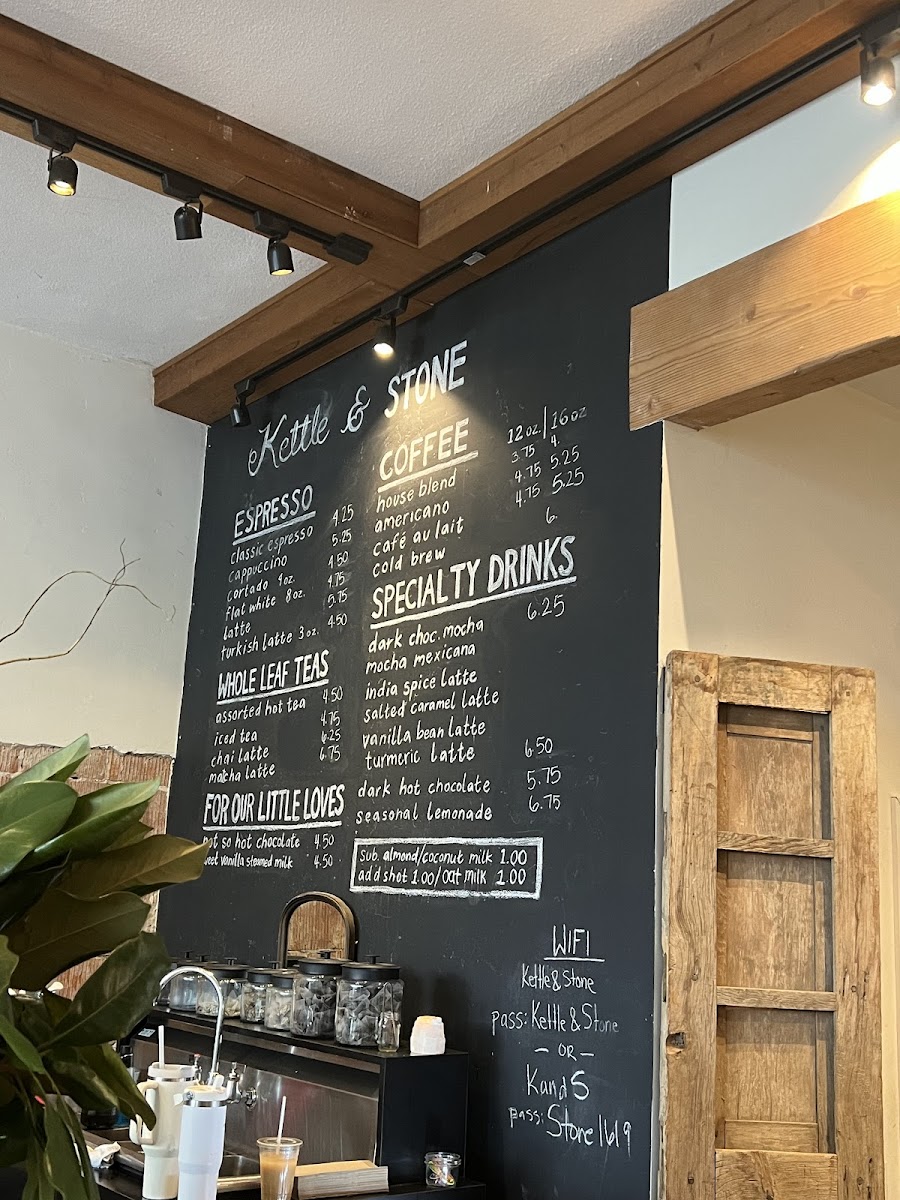 Kettle & STONE
ESPRESSO
classic espresso 4.25
cappuccino 5.25
cortado 4oz. 4.50
flat white 8oz. 4.75
latte 5.75
turkish latte 3oz. 4.50
WHOLE LEAF TEAS
assorted hot tea 4.50
iced tea 4.75
chai latte 6.25
matcha latte 6.75
FOR OUR LITTLE LOVES
not so hot chocolate 4.50
sweet vanilla steamed milk 4.50
COFFEE 12oz. | 16oz
house blend 3.75 4.
americano 4.75 5.25
café au lait 4.75 5.25
cold brew 6.
SPECIALTY DRINKS
dark choc. mocha 6.25
mocha mexicana
india spice latte
salted caramel latte
vanilla bean latte
turmeric latte
dark hot chocolate 6.50
5.75
seasonal lemonade 6.75
Sub. almond/coconut milk 1.00
add shot 1.00/oat milk 1.00
WIFI
Kettle&Stone
pass: Kettle & Stone
- OR -
KandS
pass: Stone1619